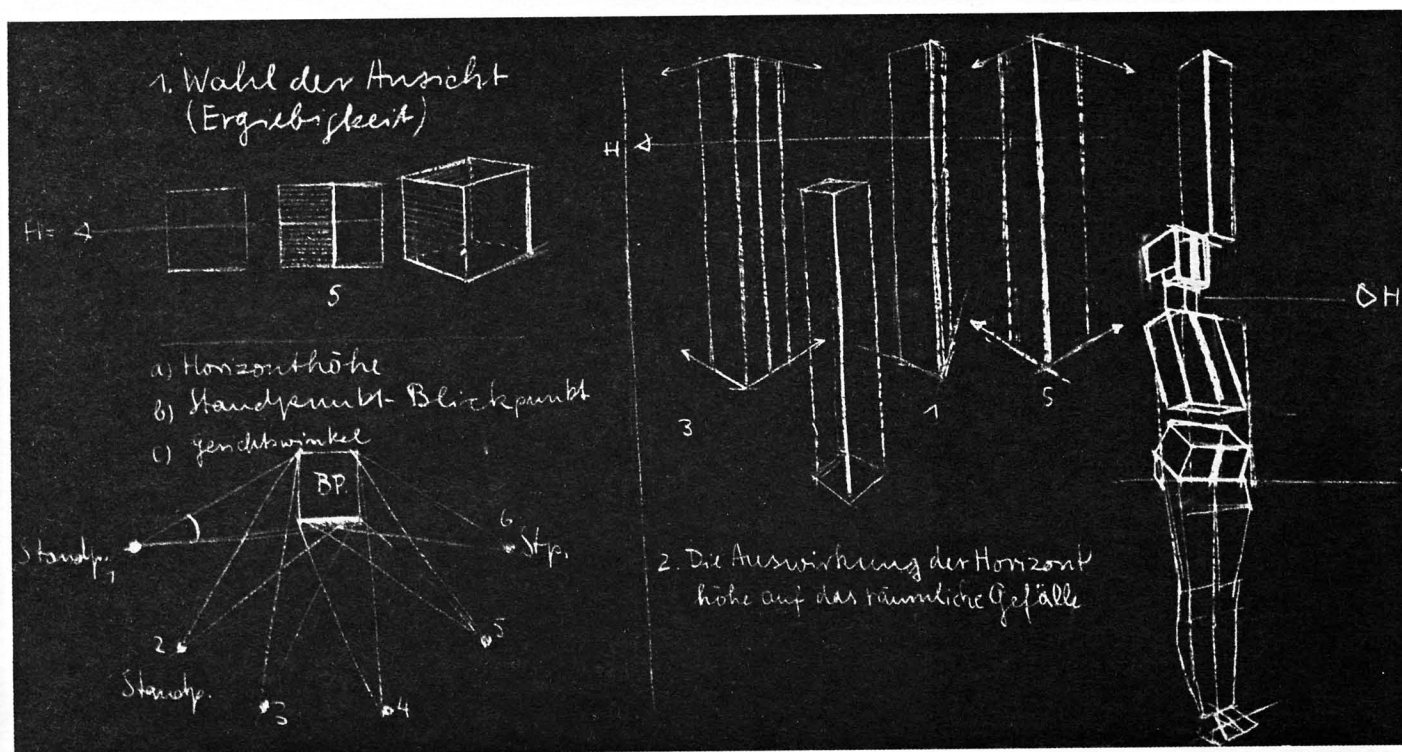 1. Wahl der Ansicht
(Ergiebigkeit)
H=
5
a) Horizonthöhe
b) Standpunkt-Blickpunkt
c) Gesichtswinkel
BP.
Standp.
1
6
Stp.
2
Standp.
3
4
5
H
3
1
5
H
2. Die Auswirkung der Horizont
höhe auf das räumliche Gefälle